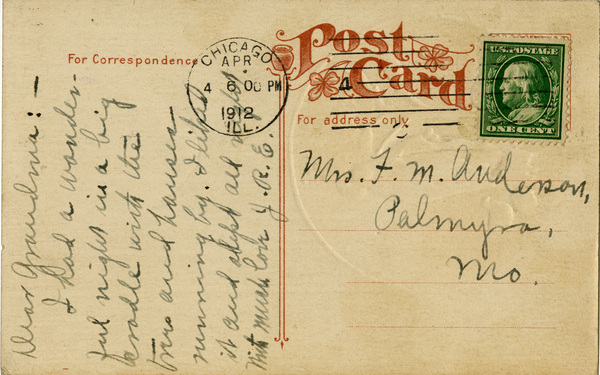 Post
Card
For Correspondence
For address only
CHICAGO
APR
4 6 00 PM
1912
ILL.
4
U.S. POSTAGE
ONE CENT
Dear Grandma:-
I had a wonder-
ful night in a big
cradle with the
trees and houses
running by. I liked
it and slept all night.
With much love J. R. E.
Mrs. F. M. Anderson,
Palmyra,
Mo.